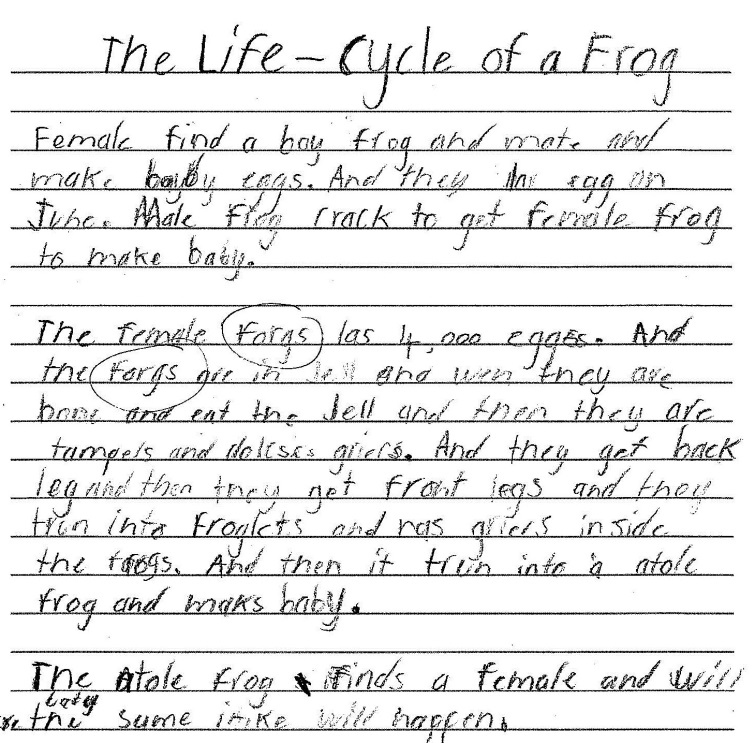 The Life-Cycle of a Frog
Female find a boy frog and mate and
make baby eggs. And they egg on
June. Male Frog crack to get female frog
to make baby.
The female Forgs las 4,000 egges. And
the Forgs are in Jell and wen they are
and eat the Jell and then they are
tampels and griels. And they get back
leg and then they get front legs and they
trun into Froglets and has griels inside
the frogs. And then it trun into a atole
frog and maks baby.
The atole frog finds a female and will
baby
the same will happen.